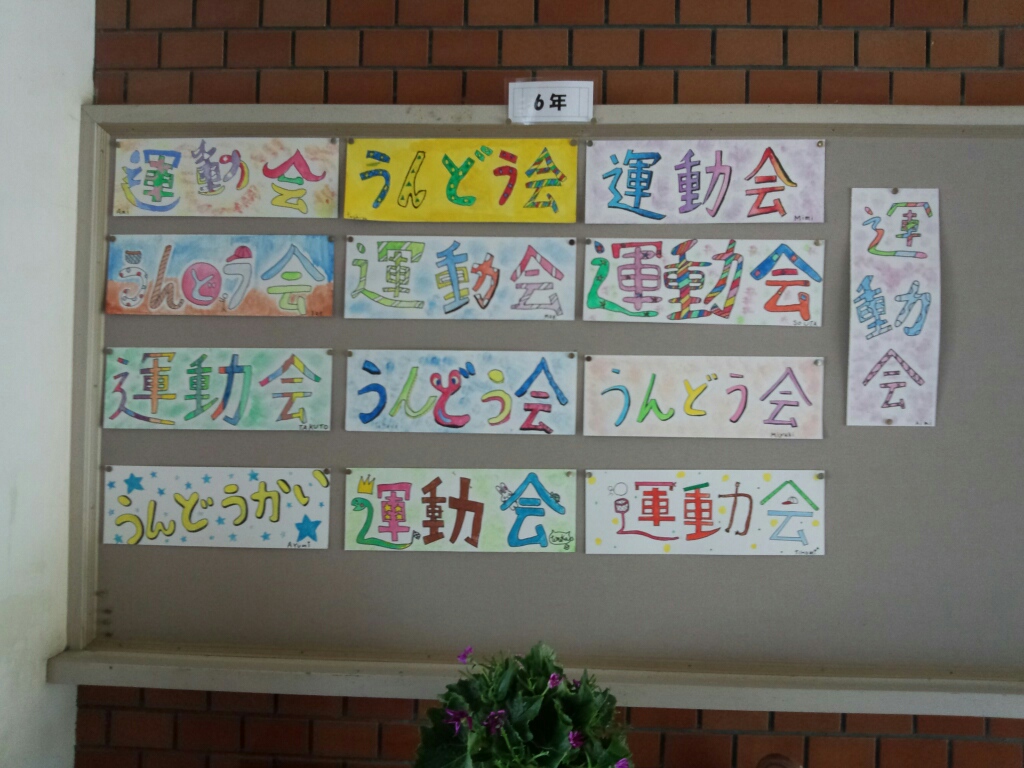 6年
運動会
うんどう会
運動会
うんどう会
運動会
運動会
運動会
うんどう会
うんどう会
うんどうかい
運動会
運動会
運動会
TAKUTO
Miyuki
Ayumi